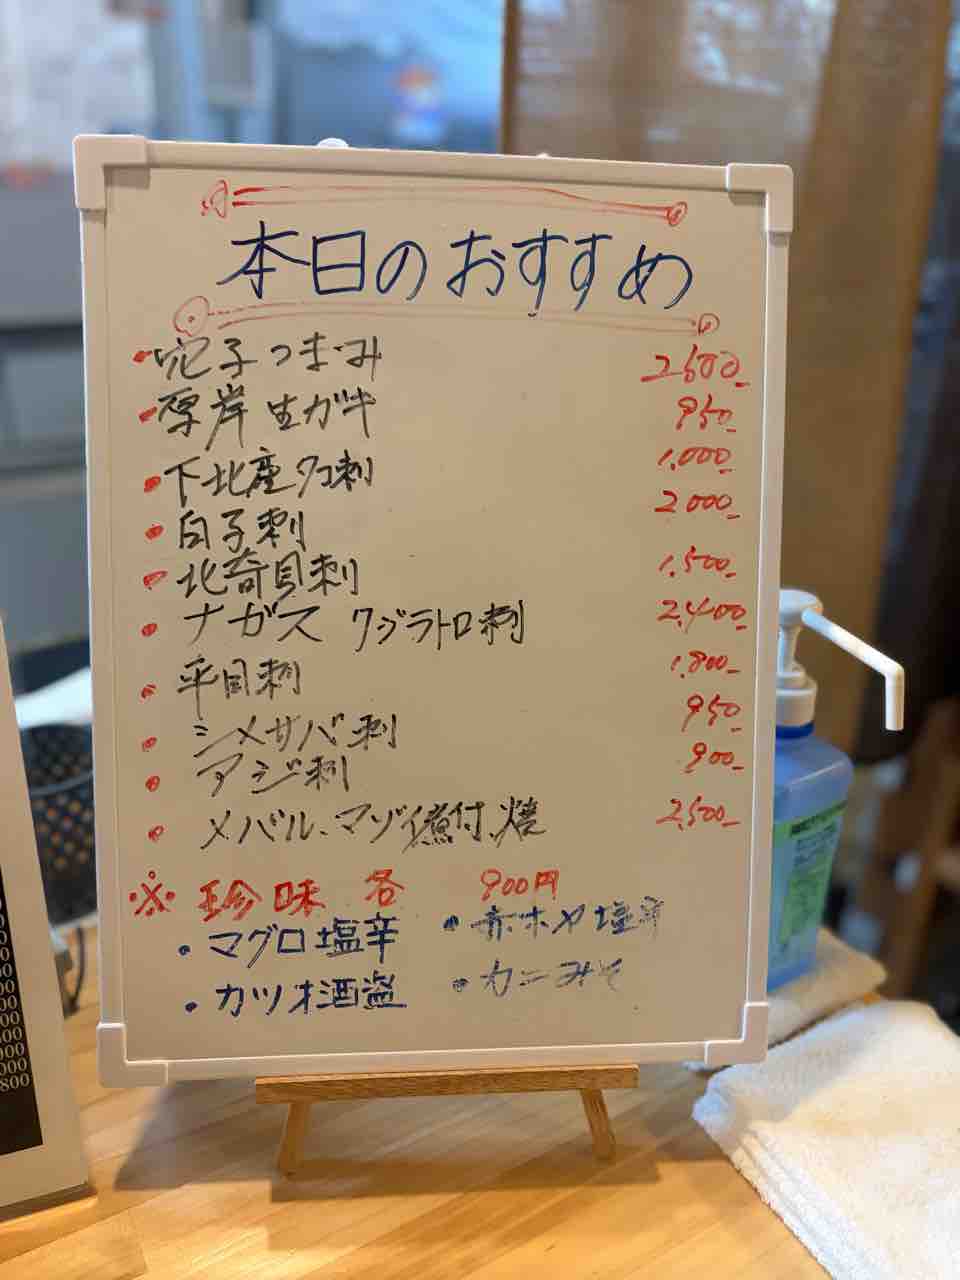 本日のおすすめ
・穴子つまみ 2,500-
・厚岸生ガキ 950-
・下北産タコ刺 1,000-
・白子刺 2,000-
・北寄貝刺 1,500-
・ナガス クジラトロ刺 2,400-
・平目刺 1,800-
・シメサバ刺 950-
・アジ刺 900-
・メバル、マゾイ煮付、焼 2,500-
※珍味 各 900円
・マグロ塩辛 ・赤ホヤ塩辛
・カツオ酒盗 ・カニみそ
000
800